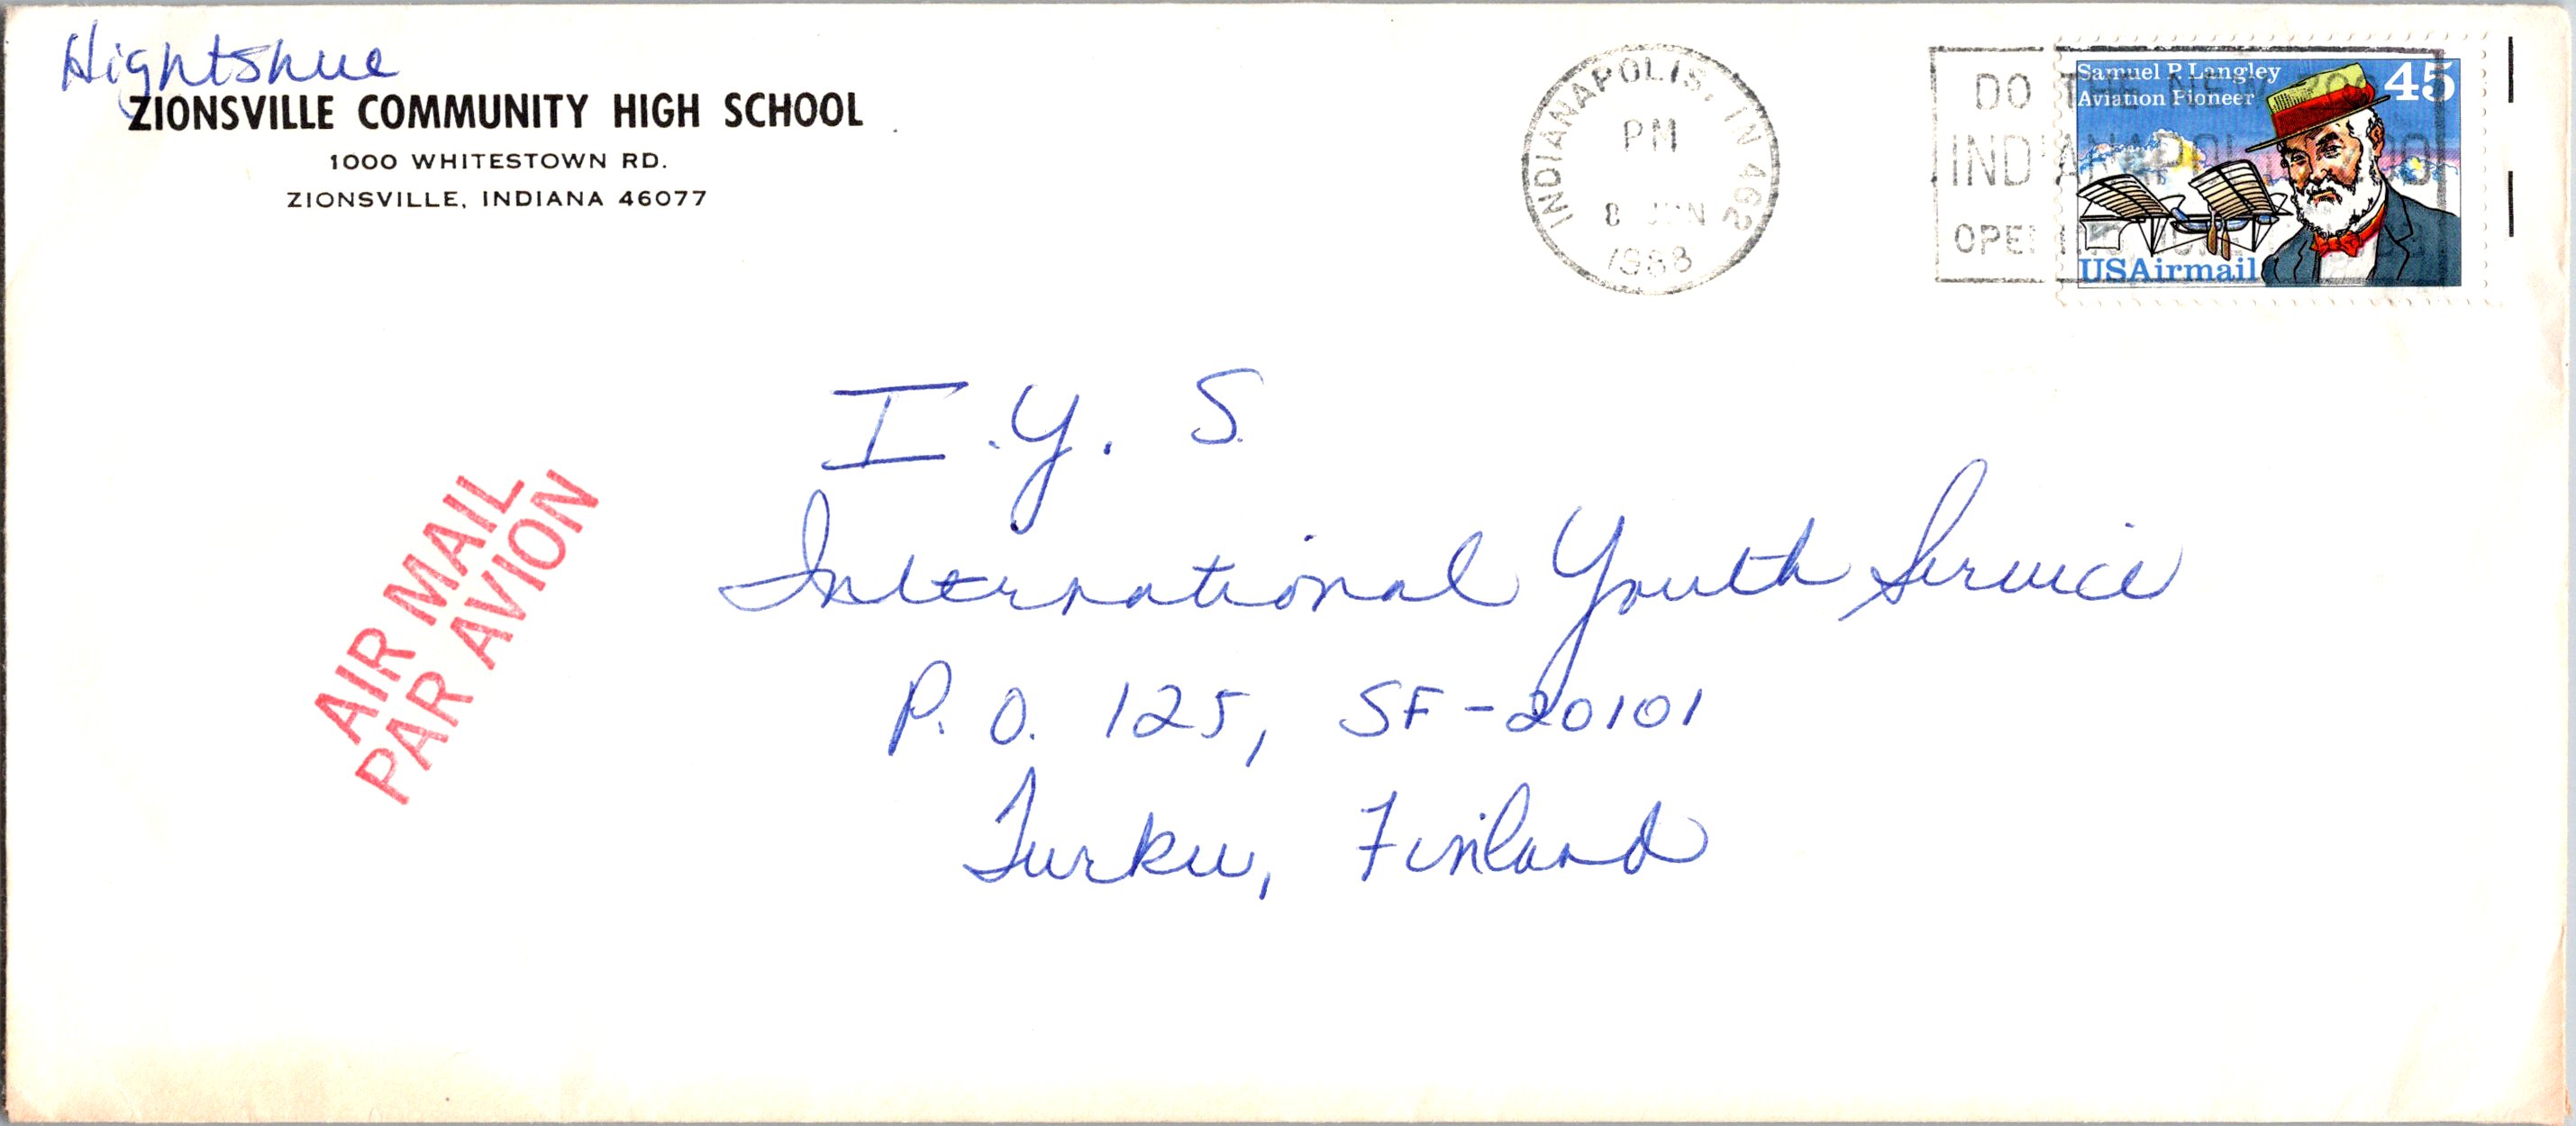 Hightshue
ZIONSVILLE COMMUNITY HIGH SCHOOL
1000 WHITESTOWN RD.
ZIONSVILLE, INDIANA 46077
INDIANAPOLIS, IN 462
PM
8 JUN
1988
DO THE NEW ZOO
INDIANAPOLIS ZOO
OPENING JUNE
Samuel P. Langley
Aviation Pioneer
45
USAirmail
I.Y. S.
International Youth Service
P. O. 125, SF-20101
Turku, Finland
AIR MAIL
PAR AVION